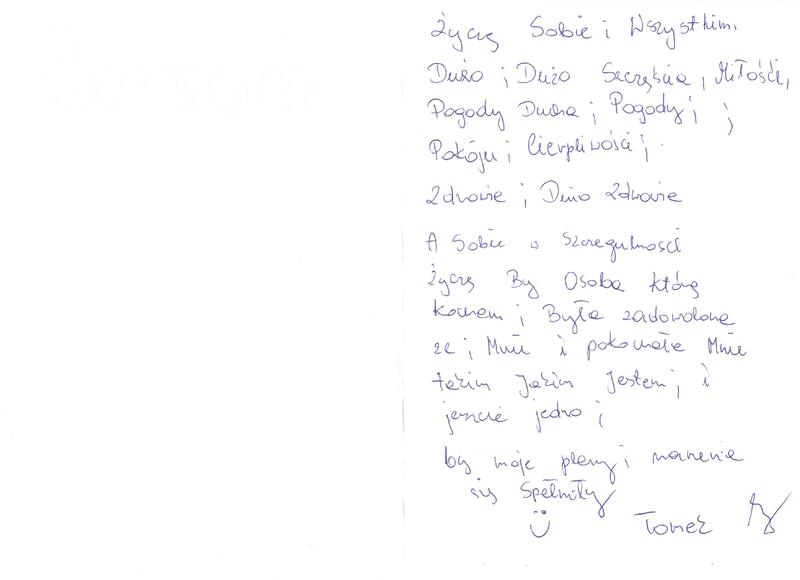 Życzę Sobie i Wszystkim.
Dużo ; Dużo Szczęścia ; Miłości,
Pogody Ducha ; Pogody ; ;
Pokóju ; Cierpliwości ; .
Zdrowie ; Dużo Zdrowie
A Sobie w Szczegulności
Życzę By Osoba którą
Kocham ; Była zadowolona
ze ; Mnie i pokochała Mnie
takim Jakim Jestem ; i
jeszcze jedno ;
by moje plany ; marzenia
się Spełniły
Tomek